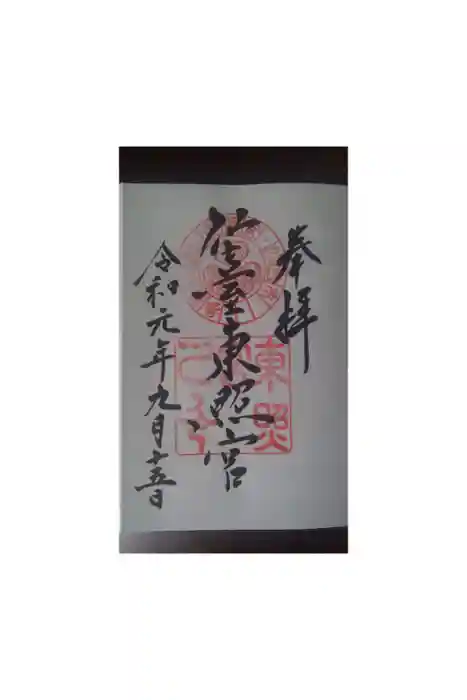 奉拝
仙臺東照宮
令和元年九月十五日
東照